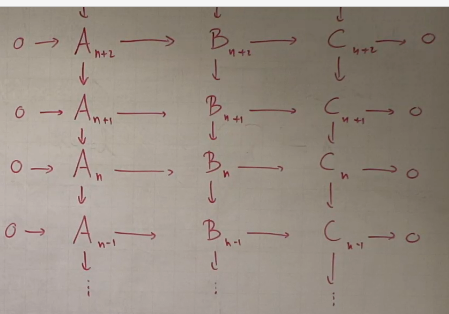 0 → A_{n+2} → B_{n+2} → C_{n+2} → 0
0 → A_{n+1} → B_{n+1} → C_{n+1} → 0
0 → A_n → B_n → C_n → 0
0 → A_{n-1} → B_{n-1} → C_{n-1} → 0